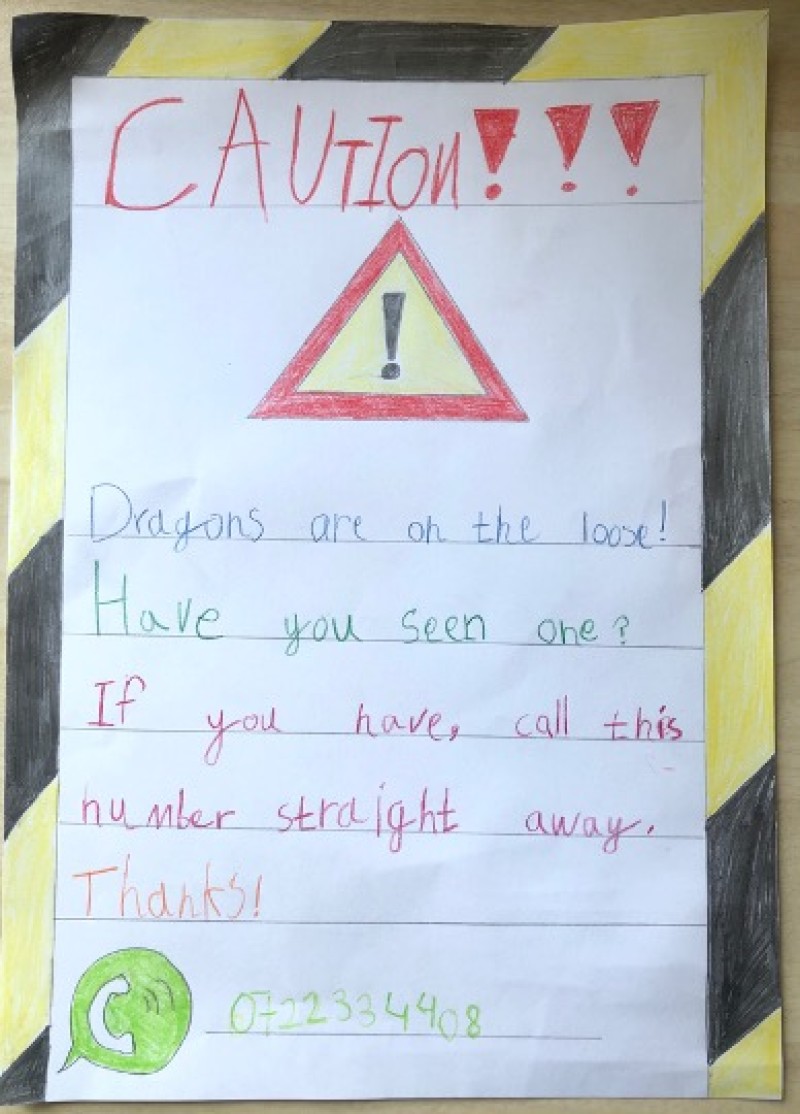 CAUTIon!!!
!
Dragons are on the loose!
Have you seen one?
If you have, call this
number straight away.
Thanks!
0722334408